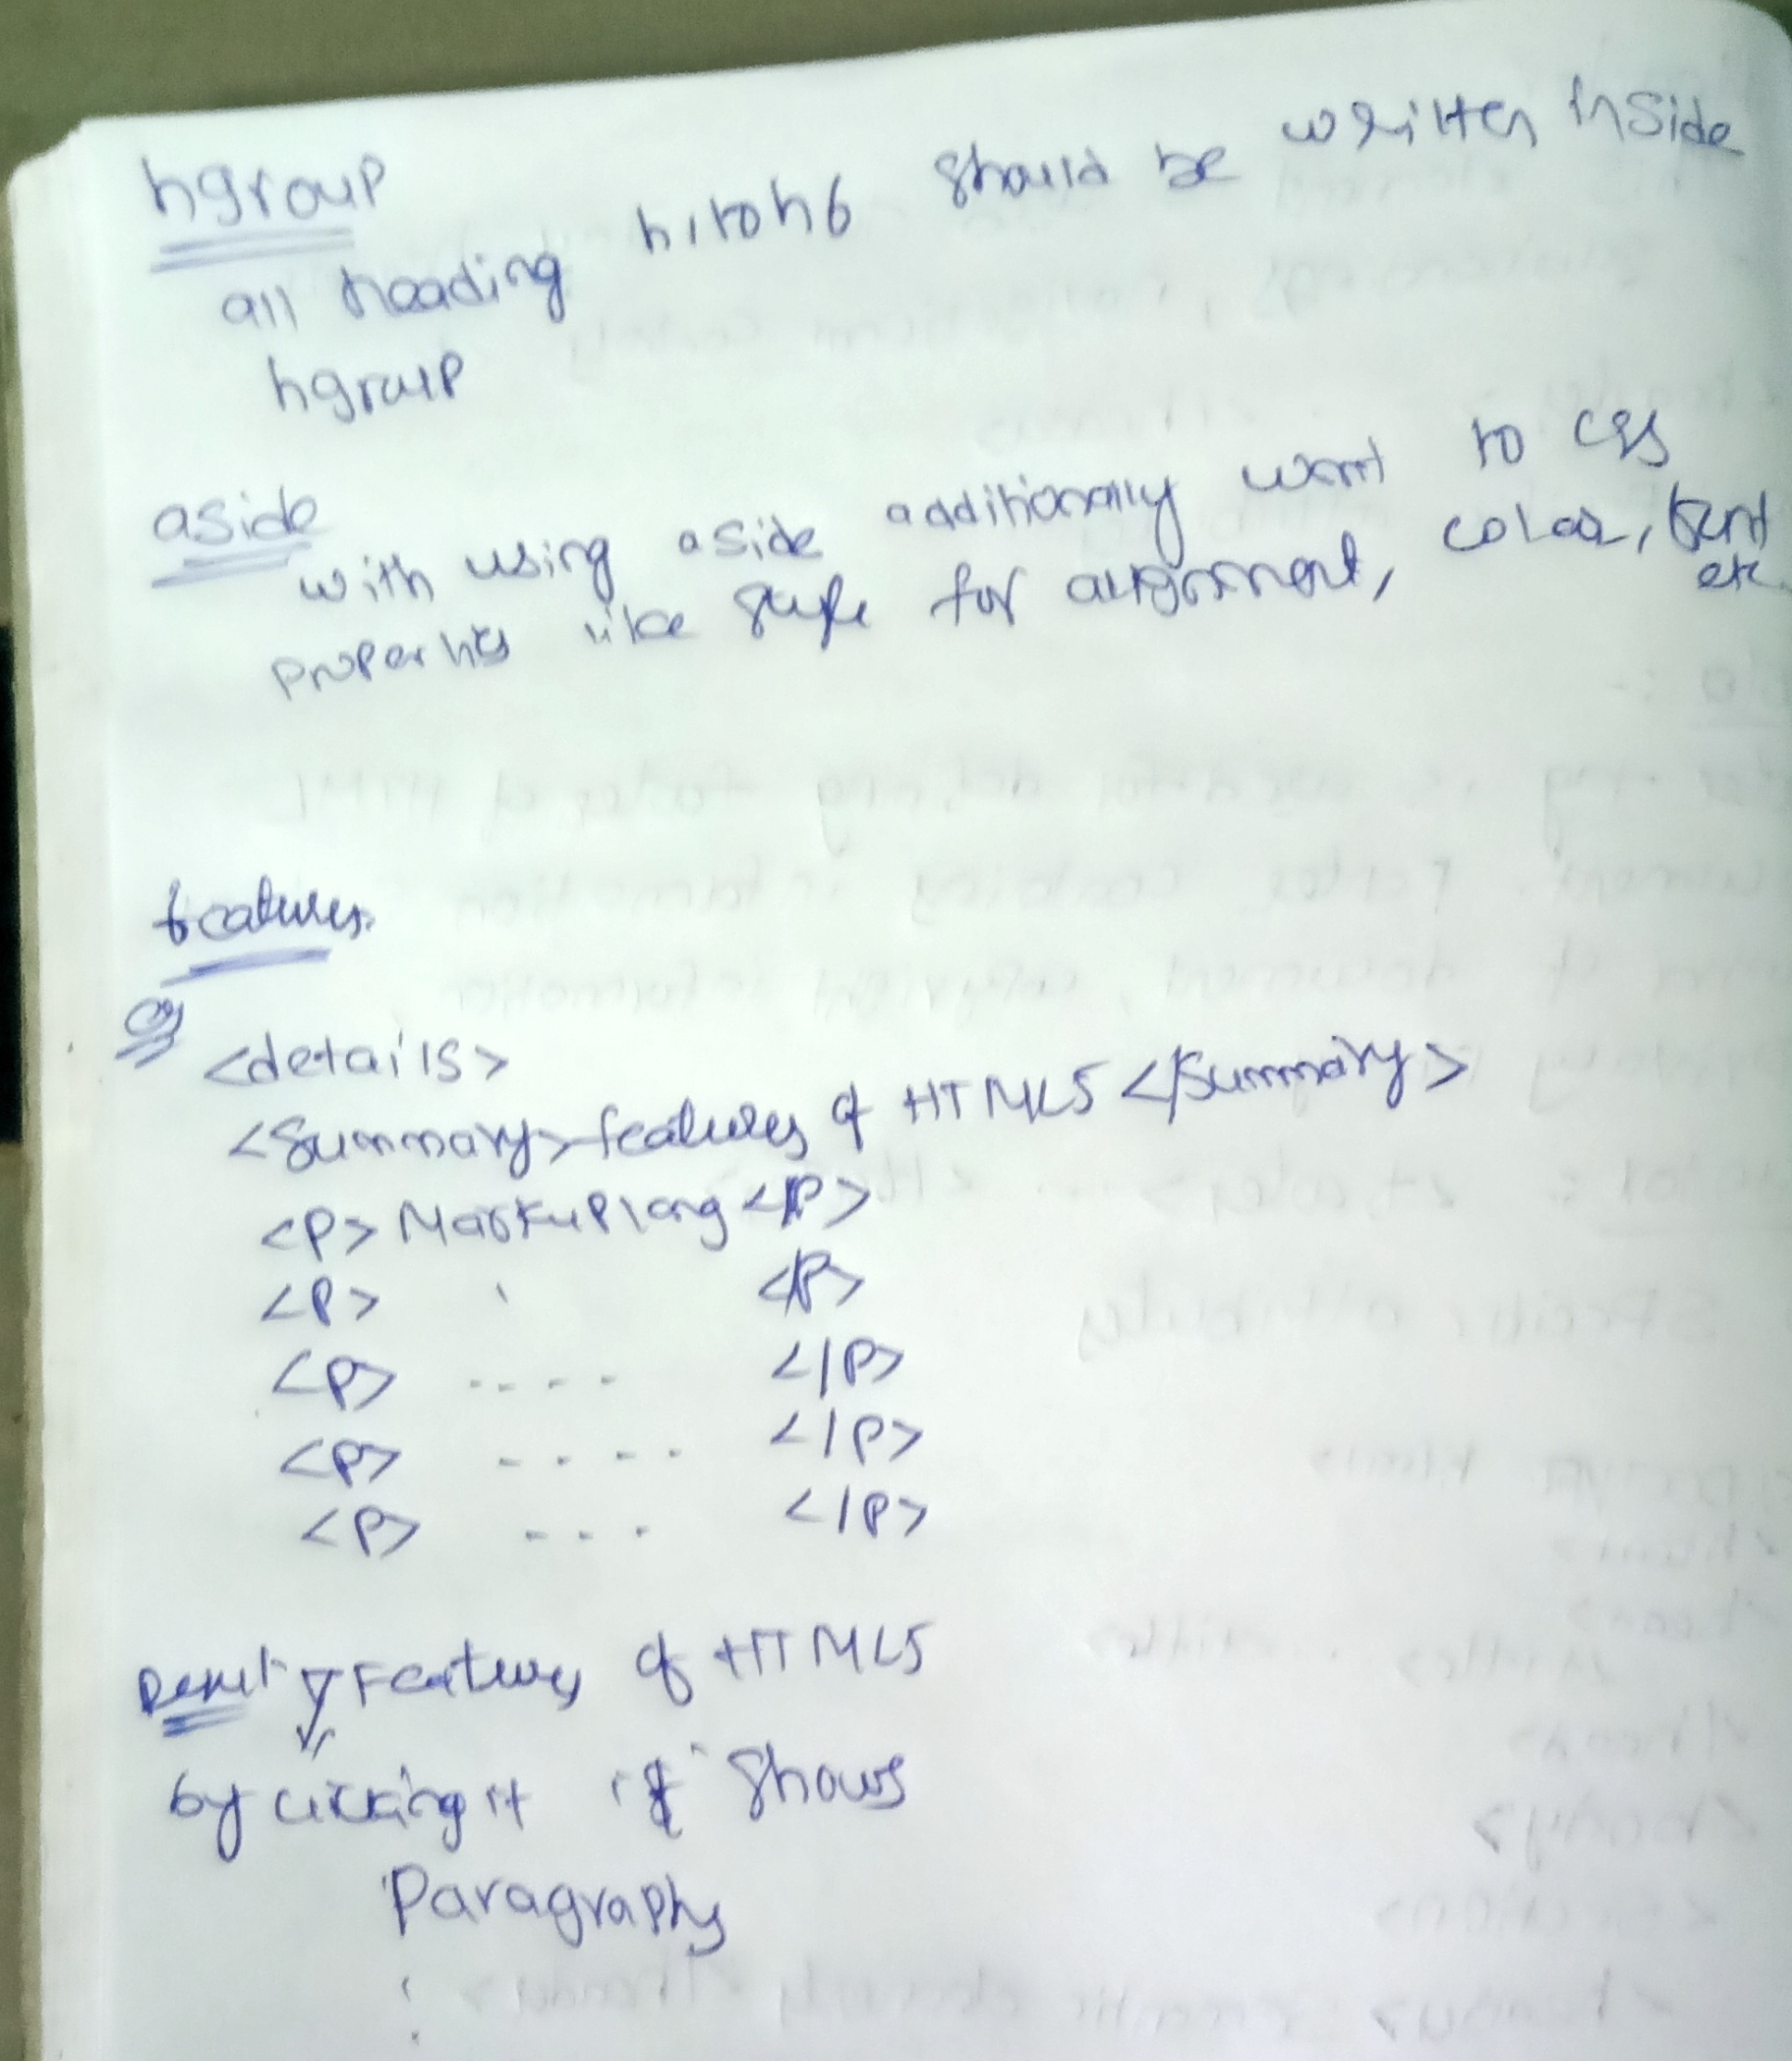 hgroup
all heading h1 to h6 should be written inside
hgroup
aside
with using aside additionally want to css
properties like style for alignment, color, font
etc.
features
eg
<details>
<Summary>features of HTML5 </Summary>
<P> Markup lang </P>
<P> </P>
<P> .... </P>
<P> .... </P>
<P> ... </P>
Result ▽ Features of HTML5
by clicking it it shows
Paragraphs